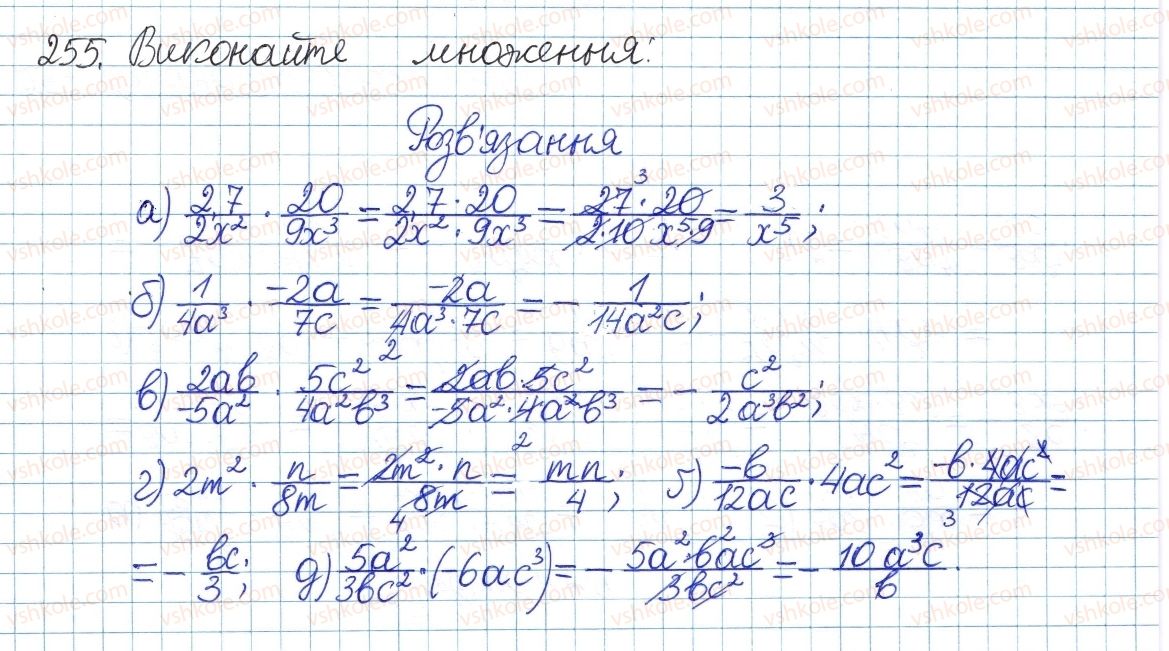 255. Виконайте множення:
Розв'язання
а) 2,7/2x² · 20/9x³ = 2,7·20/2x²·9x³ = 27³·20/2·10x⁵·9 = 3/x⁵;
б) 1/4a³ · -2a/7c = -2a/4a³·7c = - 1/14a²c;
в) 2ab/-5a² · 5c²/4a²b³ = 2ab·5c²/-5a²·4a²b³ = - c²/2a³b²;
г) 2m² · n/8m = 2m²·n/8m = mn/4; б) -b/12ac · 4ac² = -b·4ac²/12ac =
= - bc/3; д) 5a²/3bc² · (-6ac³) = - 5a²·6ac³/3bc² = - 10a³c/b.